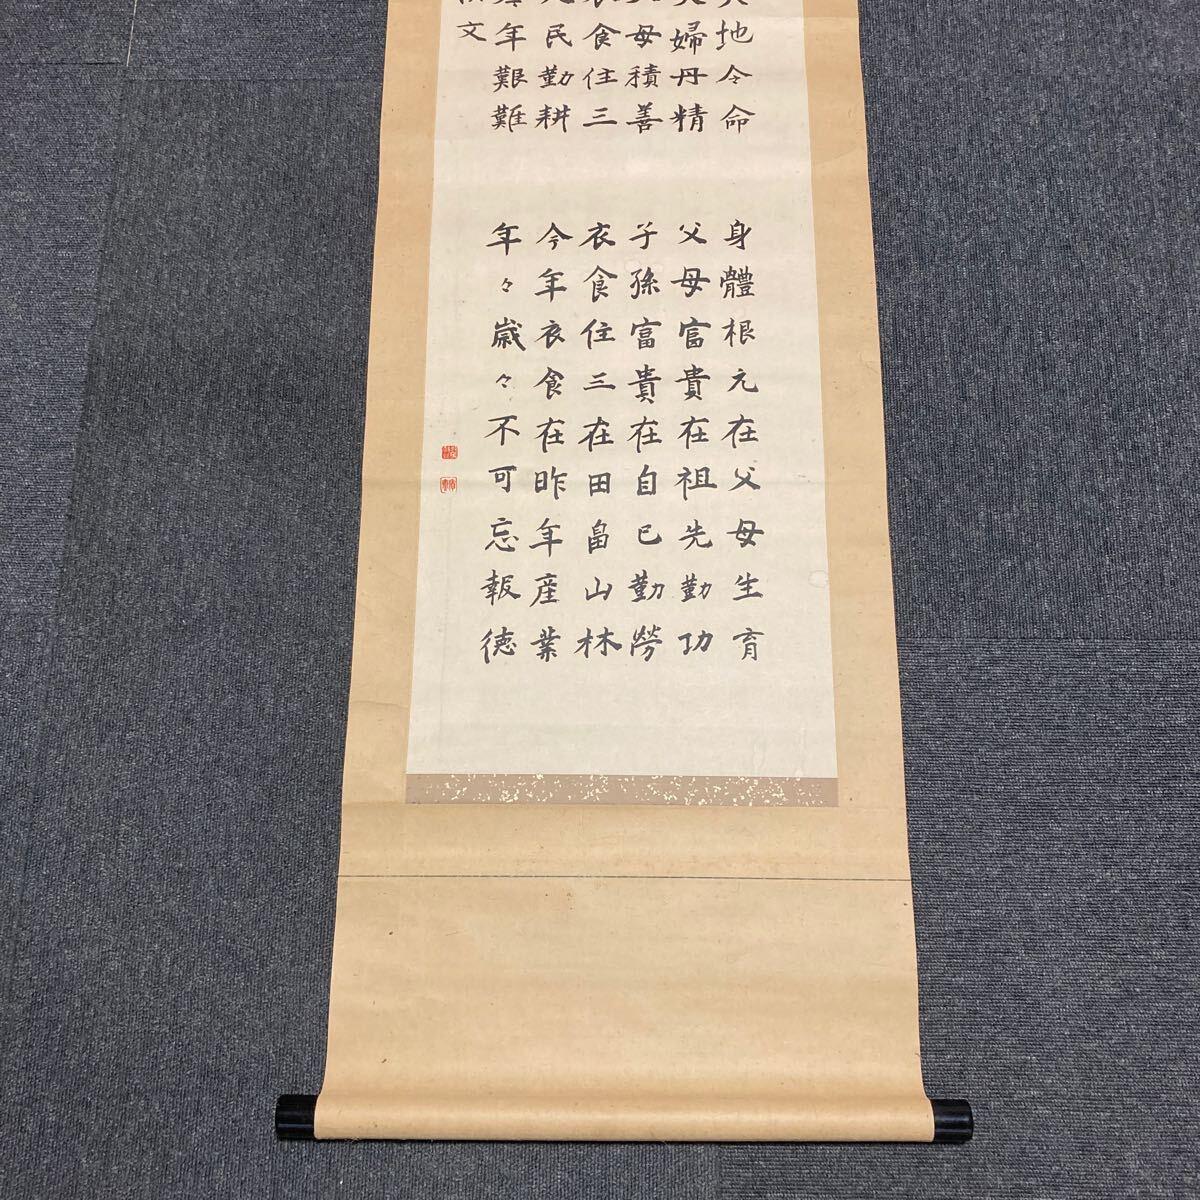 地令命
身體根元在父母生育
婦丹精
父母富貴在祖先勤功
母積善
子孫富貴在自己勤勞
食住三
衣食住三在田畠山林
民勤耕
今年衣食在昨年産業
年艱難
年々歳々不可忘報徳
文